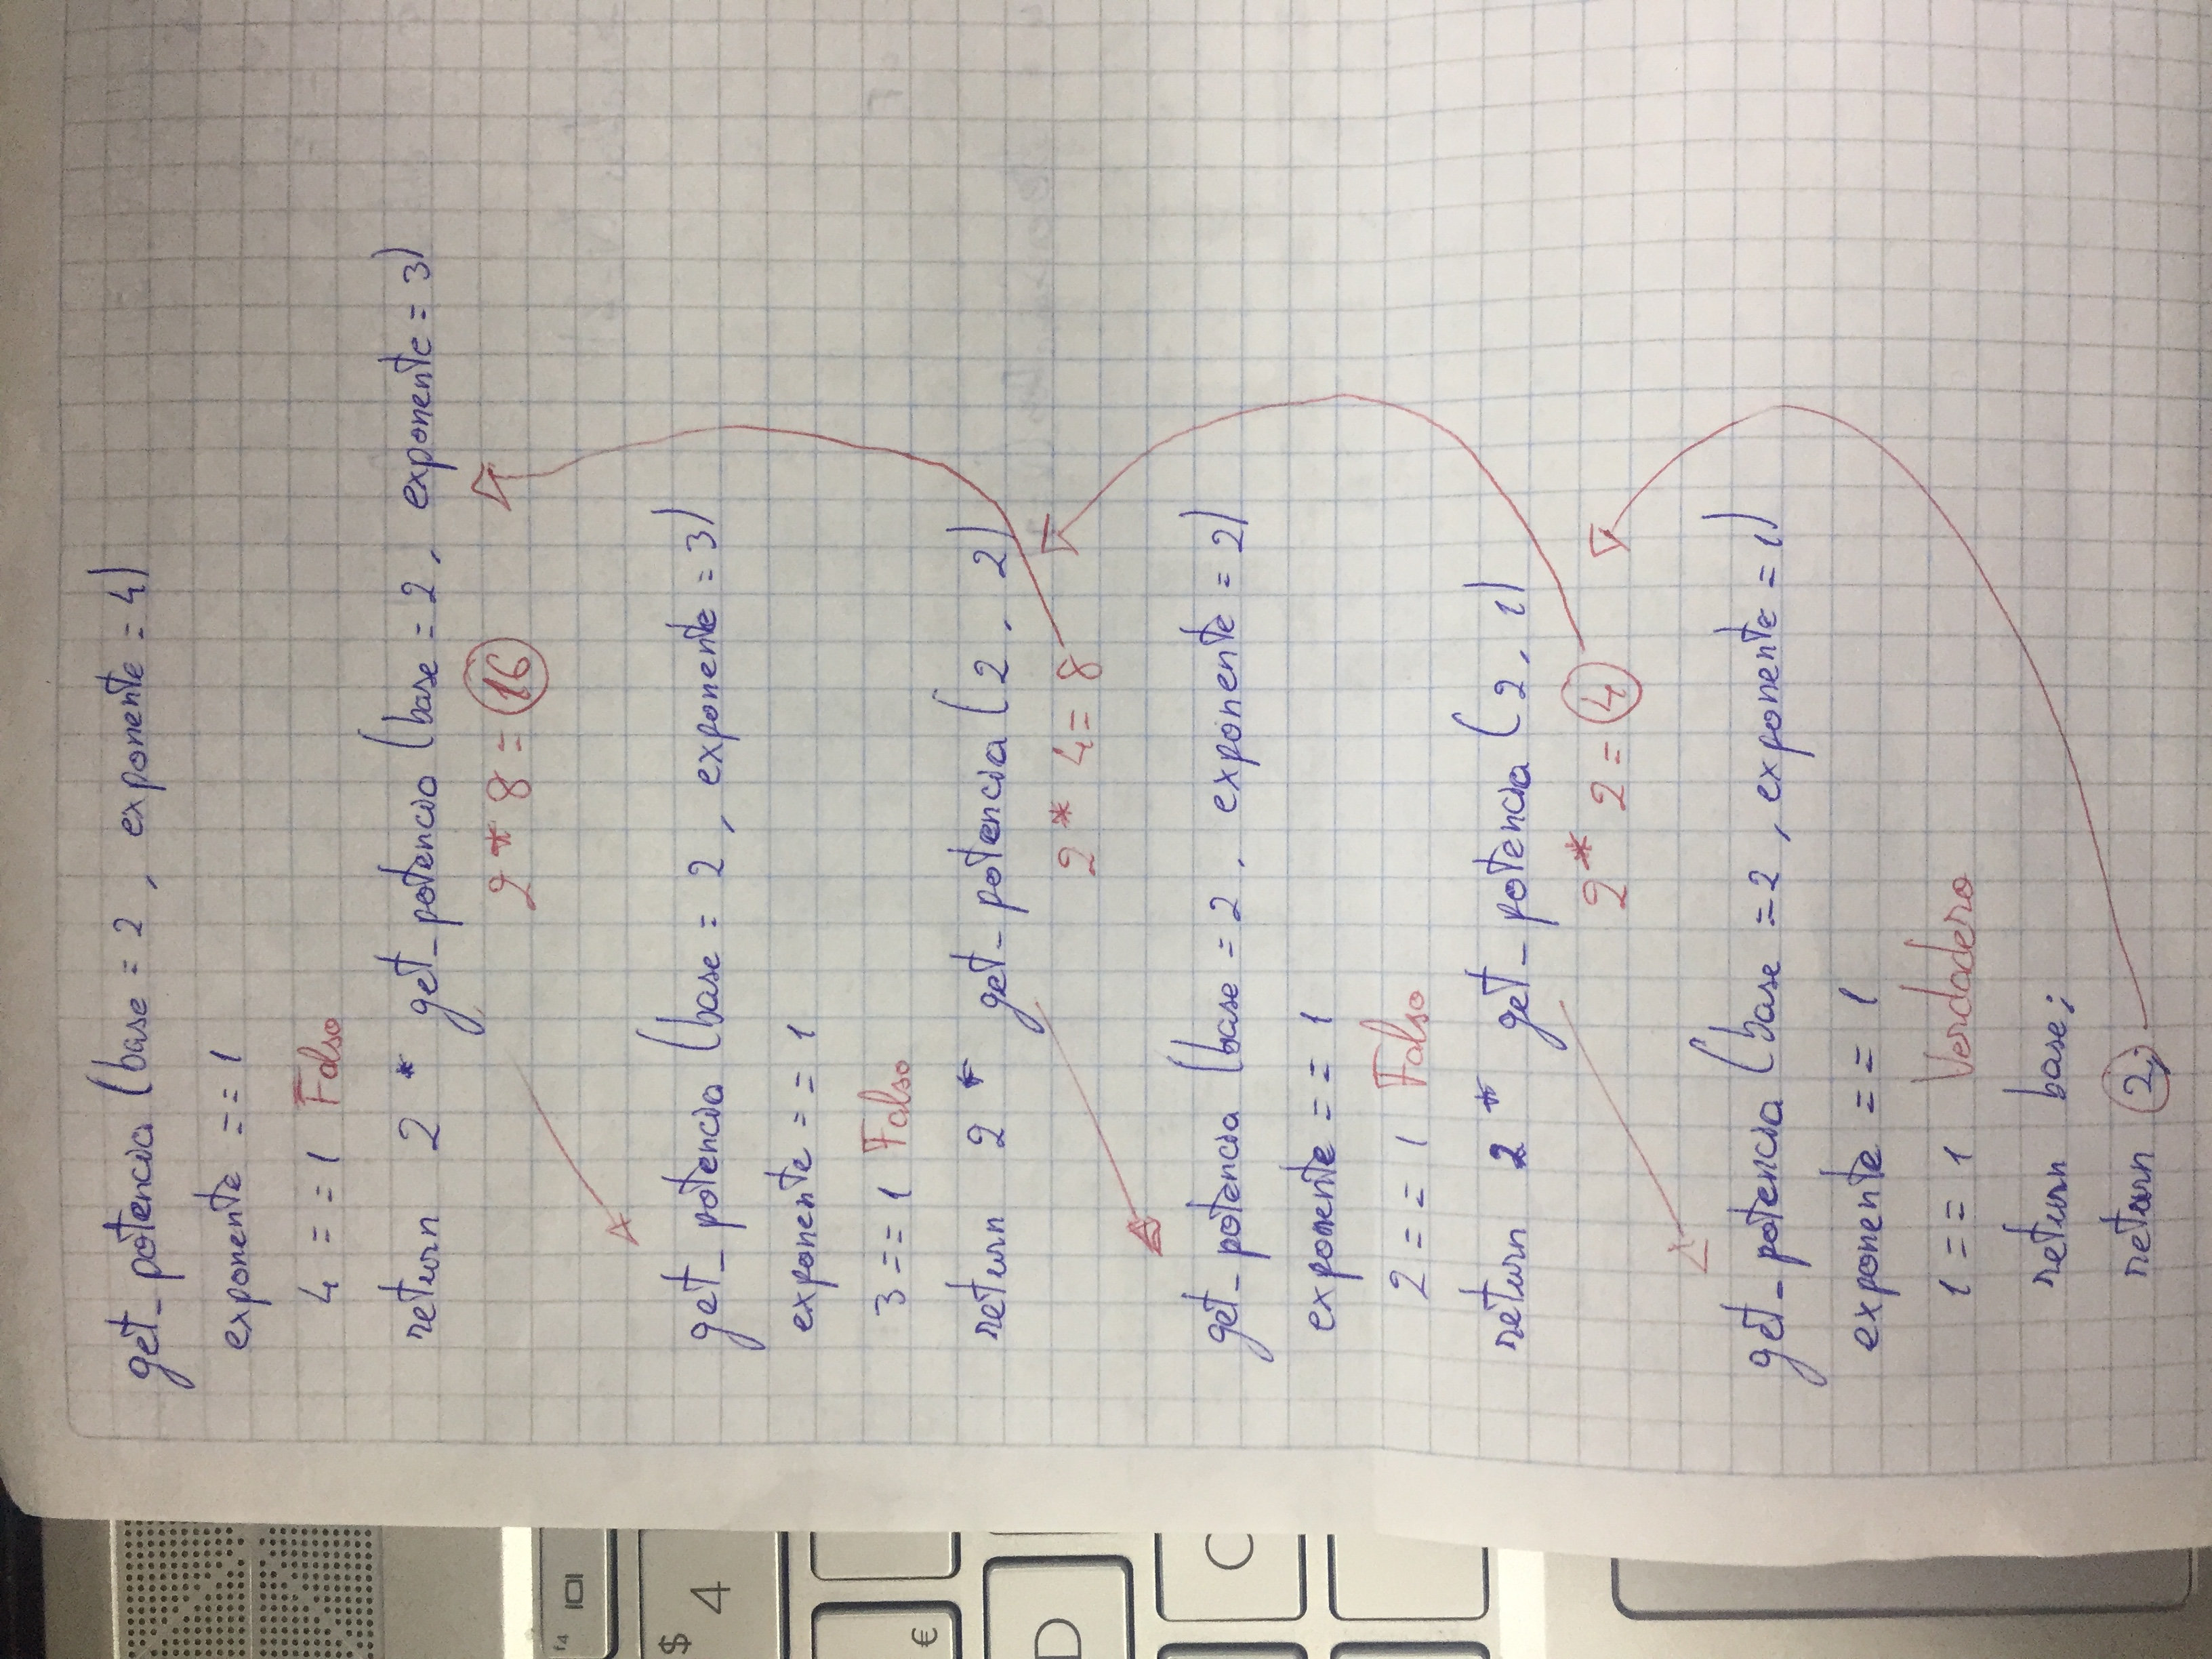 get_potencia (base = 2, exponente = 4)
exponente == 1
4 == 1 Falso
return 2 * get_potencia (base = 2, exponente = 3)
2 * 8 = 16
f4
$
4
get_potencia (base = 2, exponente = 3)
exponente == 1
3 == 1 Falso
€
return 2 * get_potencia (2, 2)
D
2 * 4 = 8
get_potencia (base = 2, exponente = 2)
C
exponente == 1
2 == 1 Falso
return 2 * get_potencia (2, 1)
2 * 2 = 4
get_potencia (base = 2, exponente = 1)
exponente == 1
1 == 1 Verdadero
return base;
return 2;